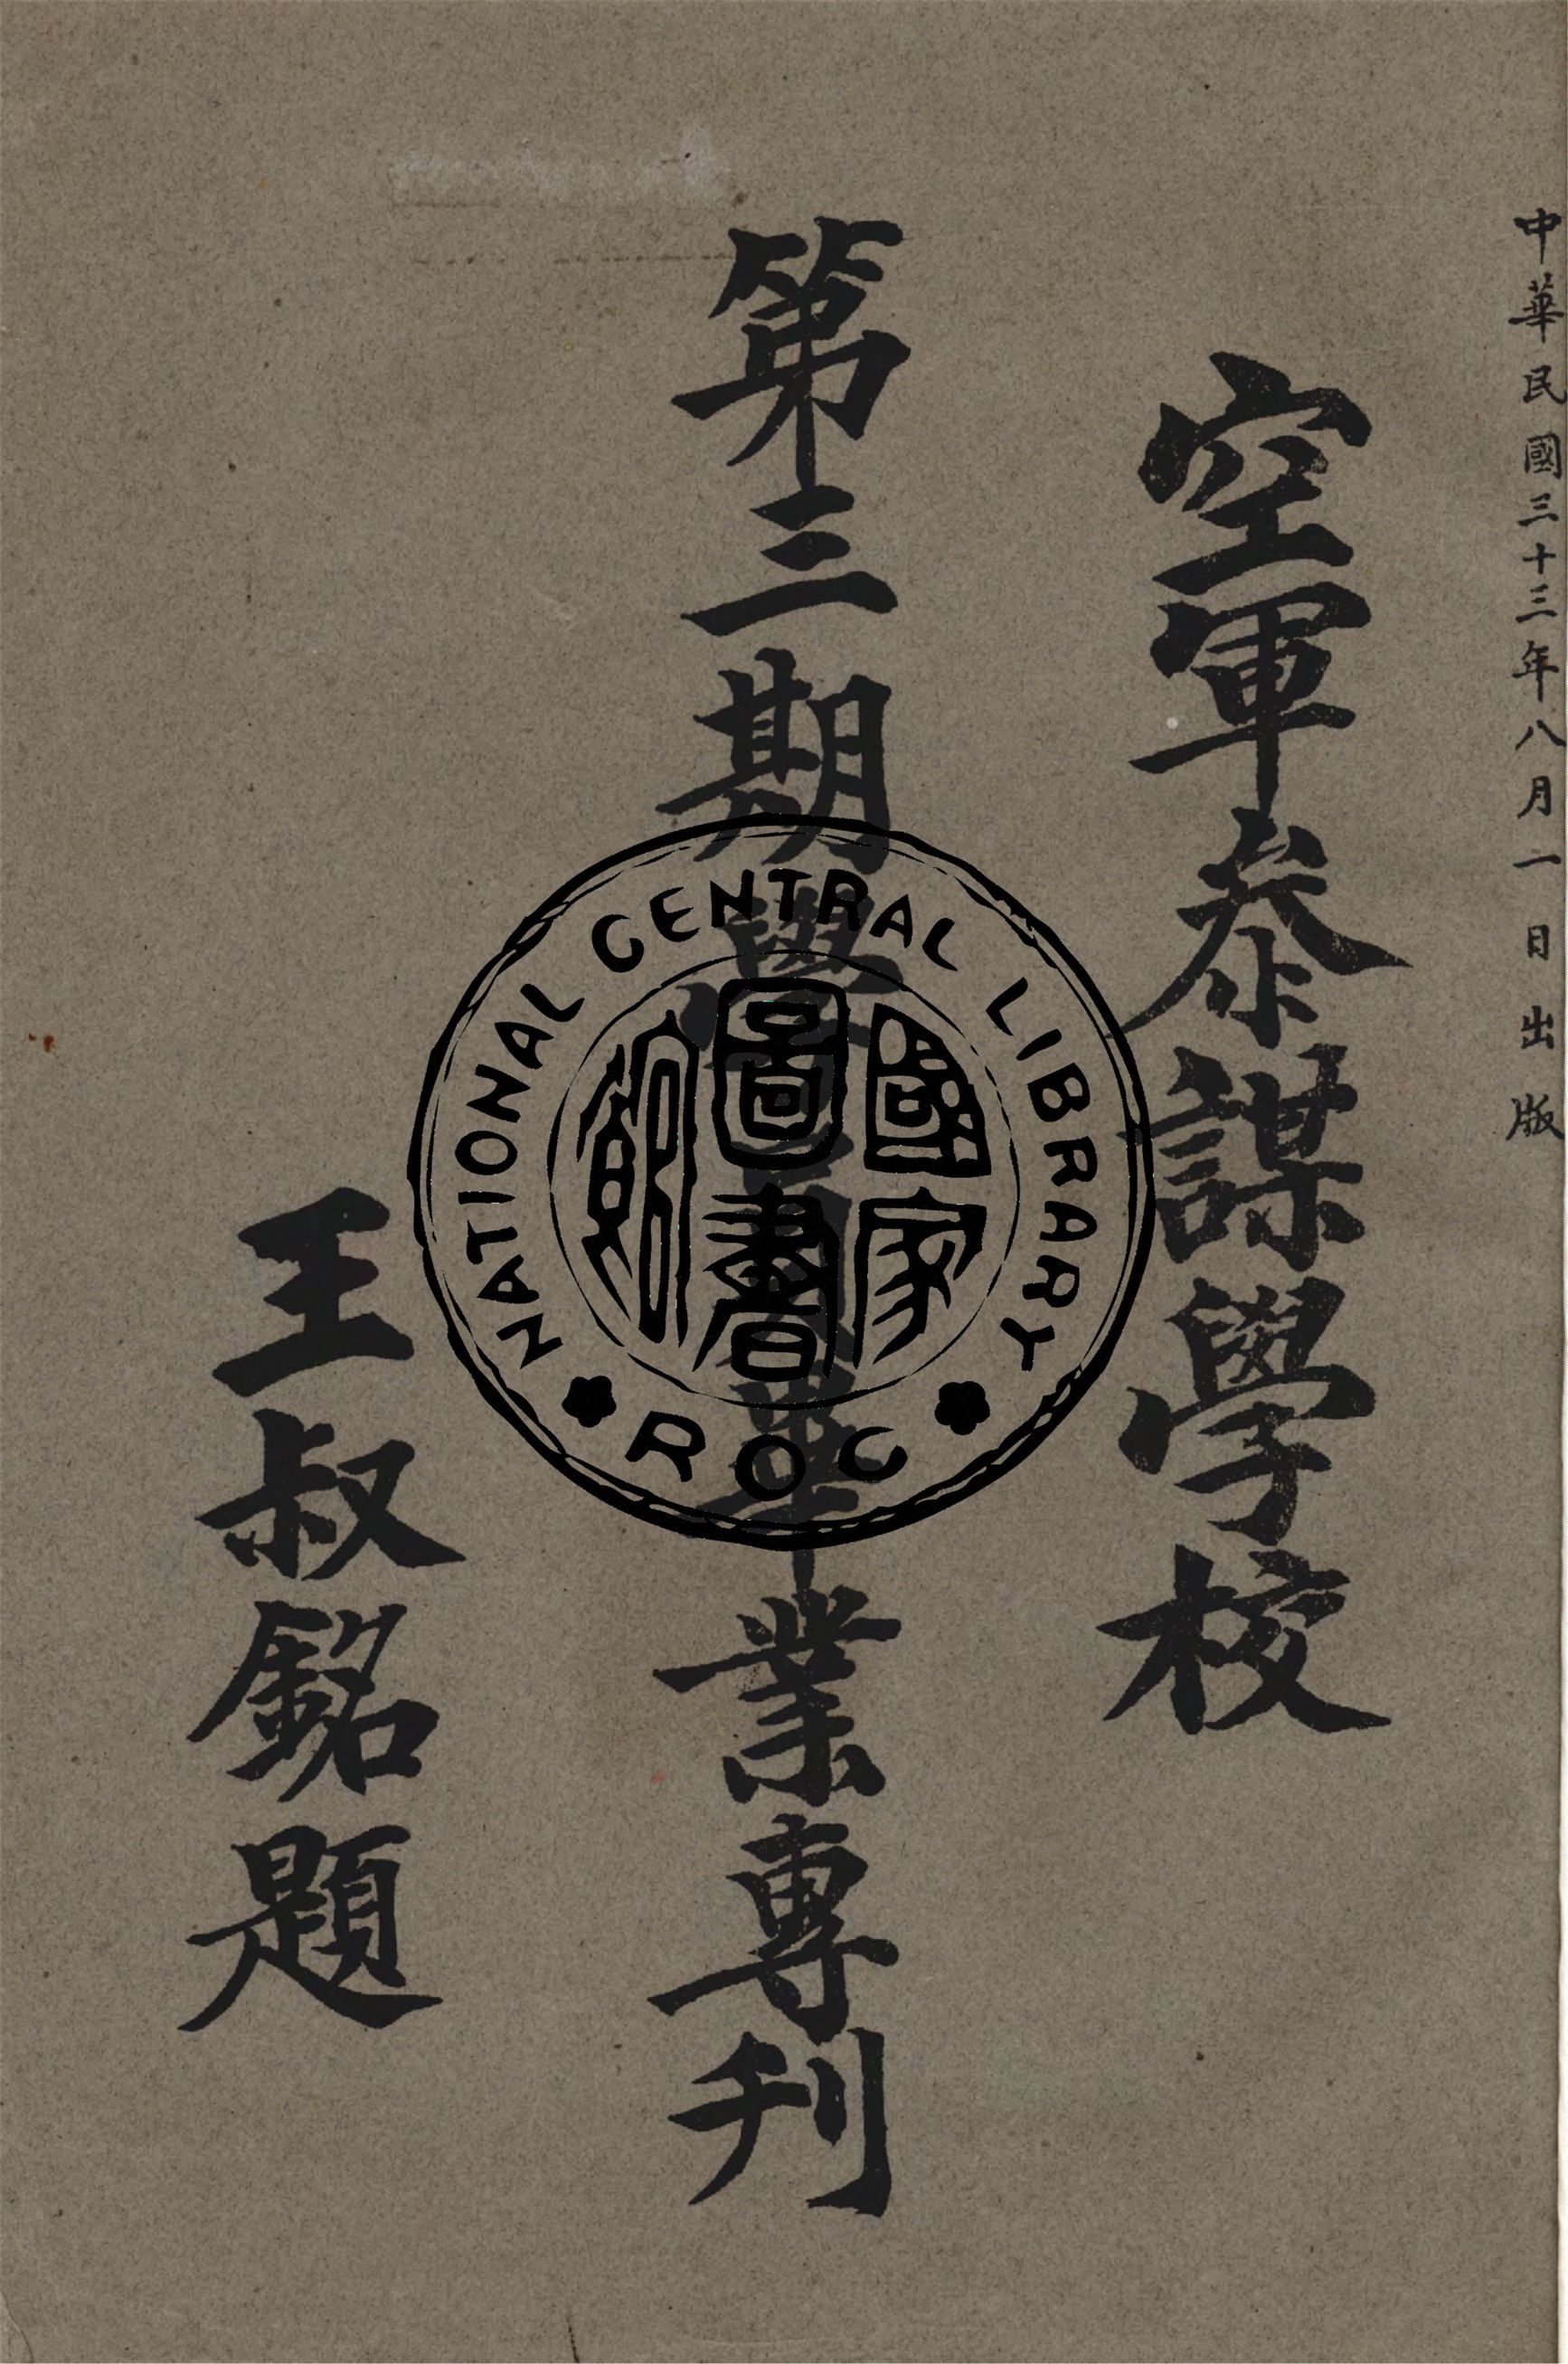 中華民國三十三年八月一日出版
空軍叅謀學校
第三期學員畢業專刊
王叔銘題
NATIONAL CENTRAL LIBRARY
ROC
國家圖書館